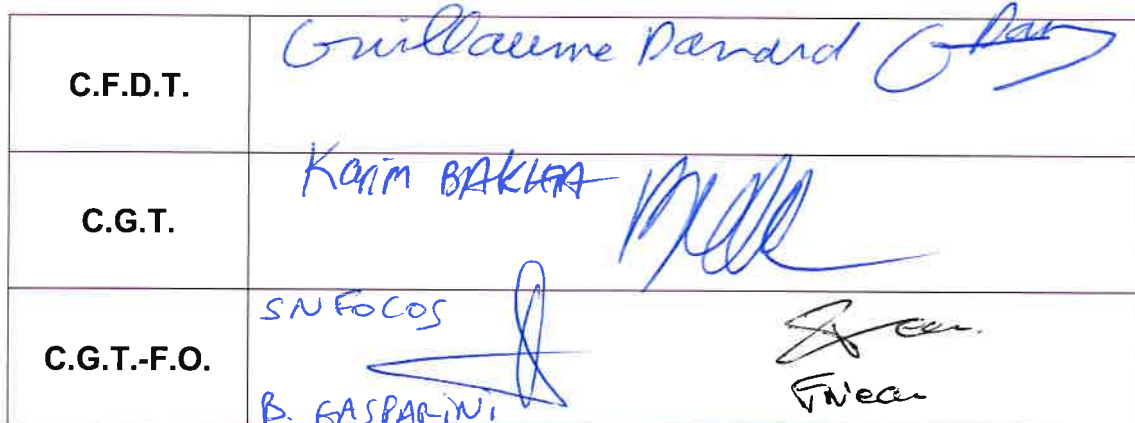 C.F.D.T.
Guillaume Danard
C.G.T.
Karim
C.G.T.-F.O.
SNFOCOS
B. GASPARINI